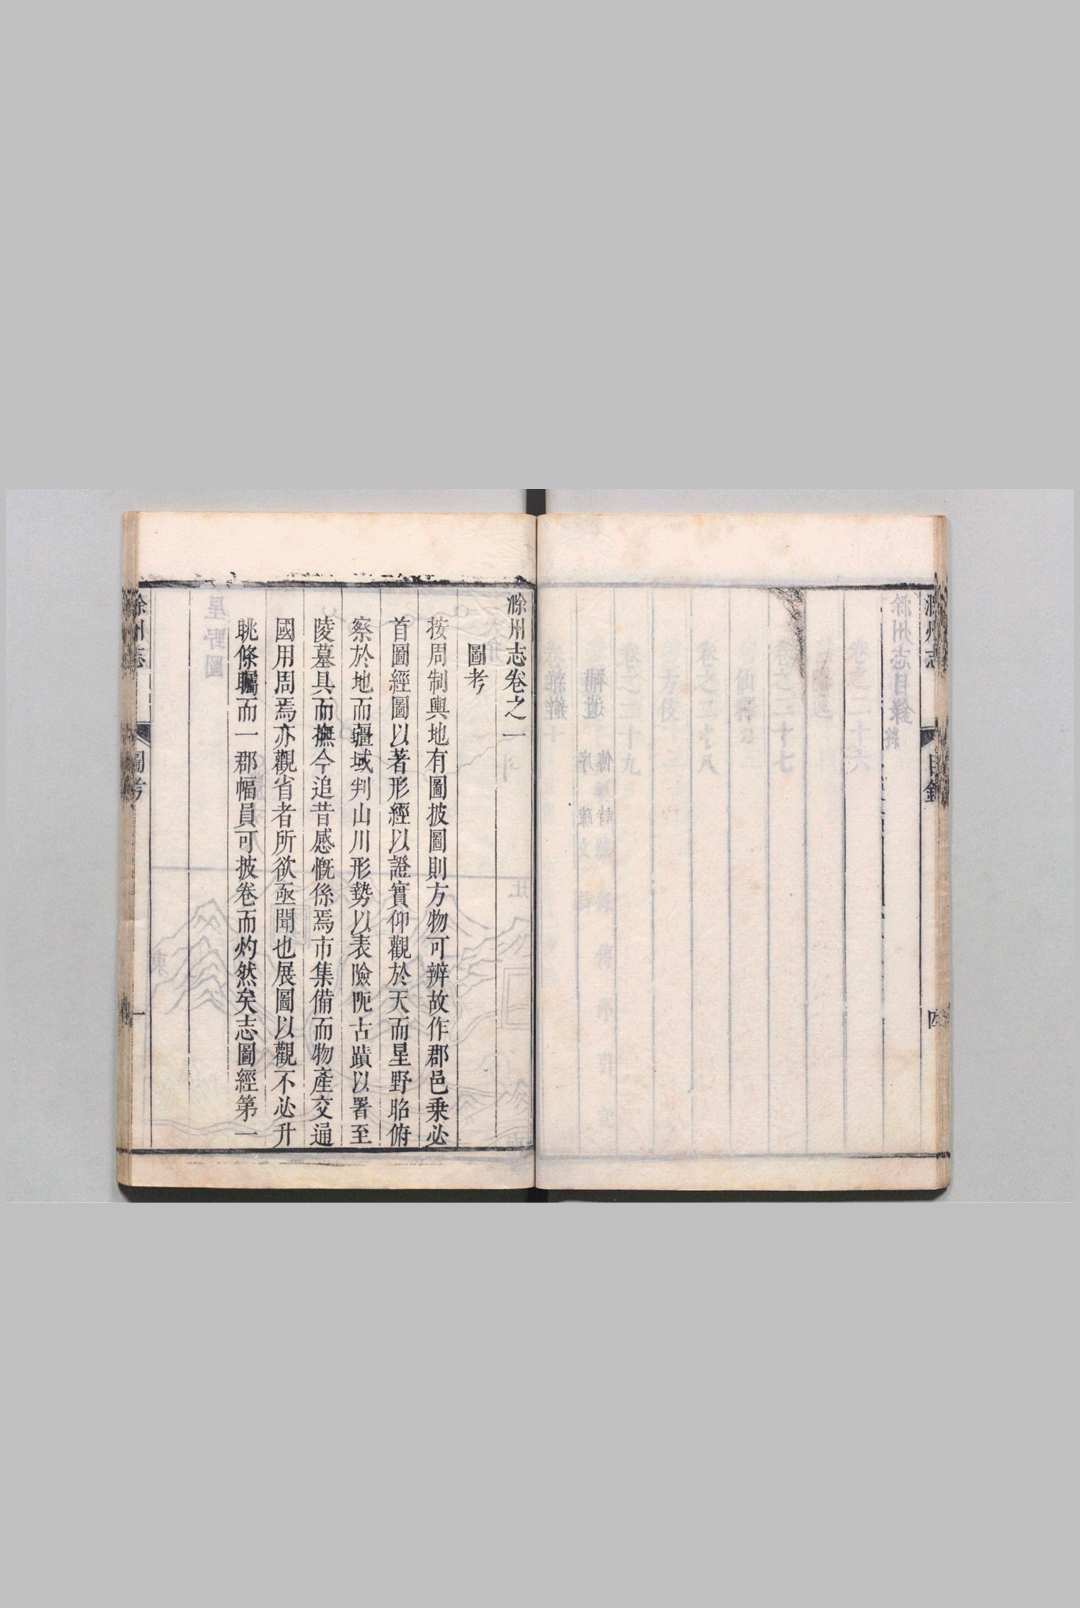 滁州志
目錄
四
滁州志卷之一
圖考
按周制輿地有圖披圖則方物可辨故作郡邑乗必
首圖經圖以著形經以證實仰觀於天而星野昭俯
察於地而疆域判山川形勢以表險阨古蹟以署至
陵墓具而撫今追昔感慨係焉市集備而物產交通
國用周焉亦觀省者所欲亟聞也展圖以觀不必升
眺條矚而一郡幅員可披卷而灼然矣志圖經第一
滁州志
圖考
一